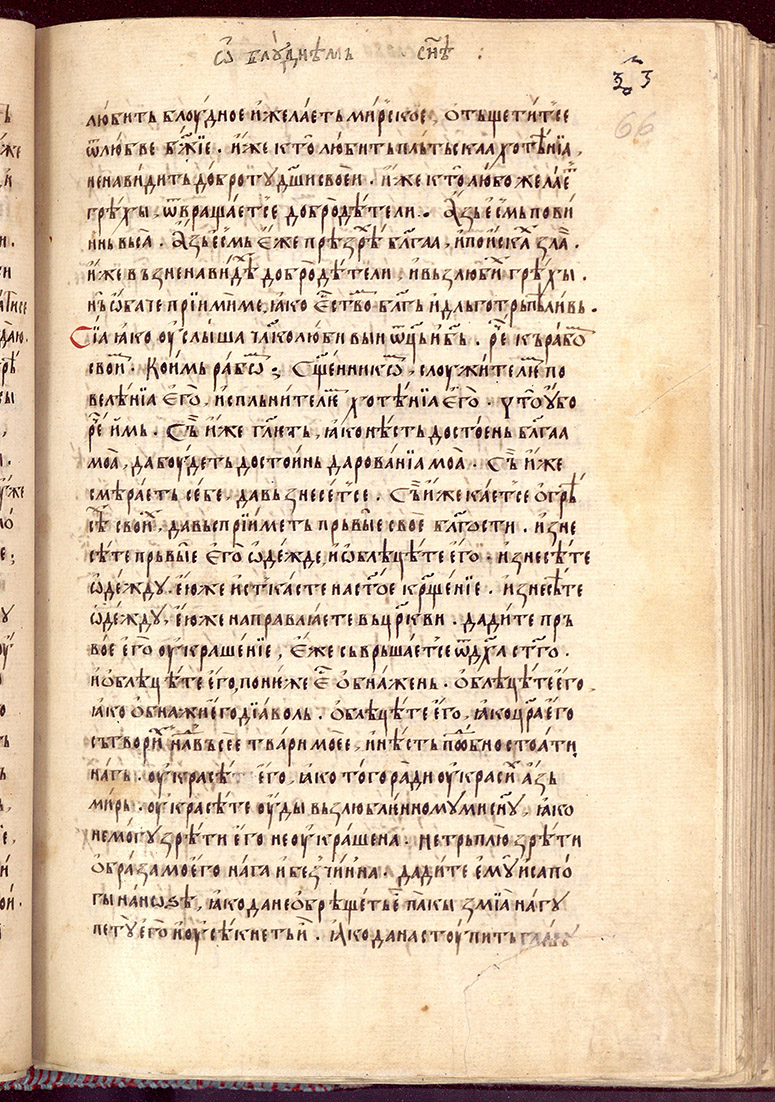 ѡ҆ блꙋ́днѣмь сн҃ѣ :
л҃ з҃
66
лю́бить блоу́дное и҆ желае́ть ми́рское, ѻ҆тъщети́тсе
ѿ лю́бве бж҃їе . и҆́же кто̀ лю́бить пльтьскаа хотѣ́нїа ,
ненави́дить до́бротꙋ дш҃и своеѝ . и҆́же кто̀ любо жела́еⷮ
грѣ́хы , ѿвраща́етсе добро́дѣ́тели . А҆́зь є҆́смь пови
ннь вьса̀ . А҆́зь є҆́смь є҆́же прѣзрѣ́ бл҃гаа , и҆ пои́ска ѕла̀ .
и҆́же въꙁненави́дѣ добро́дѣ́тели . и҆ вьꙁлюби́ грѣ́хы .
нь ѡ҆ба́че прїими́ ме, ꙗ҆́ко є҆́ство бл҃гь и҆ дльготрьпѣли́вь .
Сїа ꙗ҆́ко оу҆слы́ша чл҃колю́бивыи ѿц҃ь и҆ бь҃ . рⷱ҇е къ рабоⷨ
свои́мⷨ . Кои́мь рабѡⷨ ; Сщ҃е́нникѡⷨ , слоу́жителѥⷨ по
велѣ́нїа є҆го̀ , и҆спльни́телѥⷨ хотѣ́нїа є҆го̀ . что̀ оу҆́бо
рⷱ҇е и҆̀мь . Съⷩ҇ и҆́же гл҃еть , ꙗ҆́ко нѣ́сть досто́ень бл҃гаа
моа̀ , да боу́деть досто́инь дарова́нїа моа̀ . Съⷩ҇ и҆́же
смѣра́еть себѐ , да вьꙁнесе́тсе . Съⷩ҇ и҆́же ка́етсе ѻ҆ грѣ
сѣⷯ свои́ⷯ , да вьспрїи́меть прьвы́е своѐ бл҃гости . и҆зне
сѣ́те прьвы́е є҆го̀ ѡ҆де́жде, и҆ ѡ҆блѣцѣ́те є҆го̀ . и҆знесѣ́те
ѡ҆де́ждꙋ , є҆ю́же и҆стка́сте на ст҃о́е крщ҃е́нїе . и҆знесѣ́те
ѡ҆де́ждꙋ , є҆ю́же направлꙗ́ете вь цр҃кви . дади́те прь
во́е є҆го̀ оу҆краше́нїе , є҆́же сьврьша́етсе ѿ дх҃а ст҃го .
и҆ ѻ҆блѣцѣ́те є҆го̀, пони́же є҆ⷭ҇ ѻ҆бнаже́нь . ѻ҆блѣцѣ́те є҆го̀ ,
ꙗ҆́ко ѻ҆бнажи́ е҆го дїа́воль . ѻ҆блѣцѣ́те є҆го̀ , ꙗ҆́ко цр҃а є҆го
сьтвори́ⷯ наⷣ въсе́е тва́ри мое́е , и҆ нѣ́сть поⷣбно стоа́ти
на́гь . оу҆красѣ́те є҆го̀ , ꙗ҆́ко то́го ра́ди оу҆краси́ⷯ а҆́зь
ми́рь . оу҆красѣ́те оу҆́ды вьзлюбле́нномꙋ ми сн҃ꙋ , ꙗ҆ко
не мо́гꙋ зрѣ́ти є҆го̀ не оу҆кра́шена . не трьплю̀ зрѣ́ти
ѻ҆́браꙁа мое́го на́га и҆ беꙁ чи́нна . дади́те є҆мꙋ и҆ сапо́
гы на но́ꙁѣ , ꙗ҆́ко да не ѻ҆брѣ́щеть є҆ пакы ѕмїа на́гꙋ
петꙋ̀ є҆го̀ и҆ оу҆сѣ́кнеть и҆̀ . ꙗ҆́ко да настоу́пить гла́вꙋ